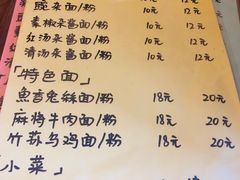 豌杂面/粉 10元 12元
素椒杂酱面/粉 10元 12元
红汤杂酱面/粉 10元 12元
清汤杂酱面/粉 10元 12元
「特色面」
鱼香兔丝面/粉 18元 20元
麻辣牛肉面/粉 18元 20元
竹荪乌鸡面/粉 18元 20元
「小菜」